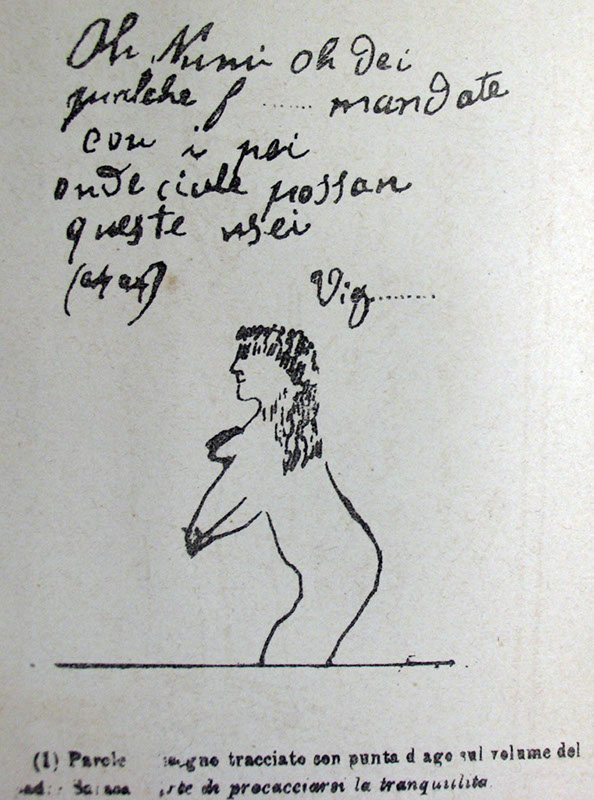 Oh Numi oh dei
qualche f ...... mandate
con i pei
onde ciule possan
queste usei
Vig........
(1) Parole segno tracciato con punta d ago sul volume del
arte di procacciarsi la tranquillita